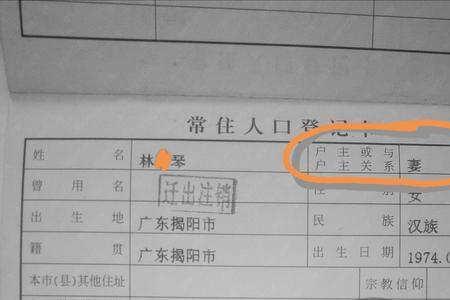 常住人口登记卡
姓名 林 琴 户主或与户主关系 妻
曾用名 迁出注销 性别 女
出生地 广东揭阳市 民族 汉族
籍贯 广东揭阳市 出生日期 1974.0
本市(县)其他住址 宗教信仰